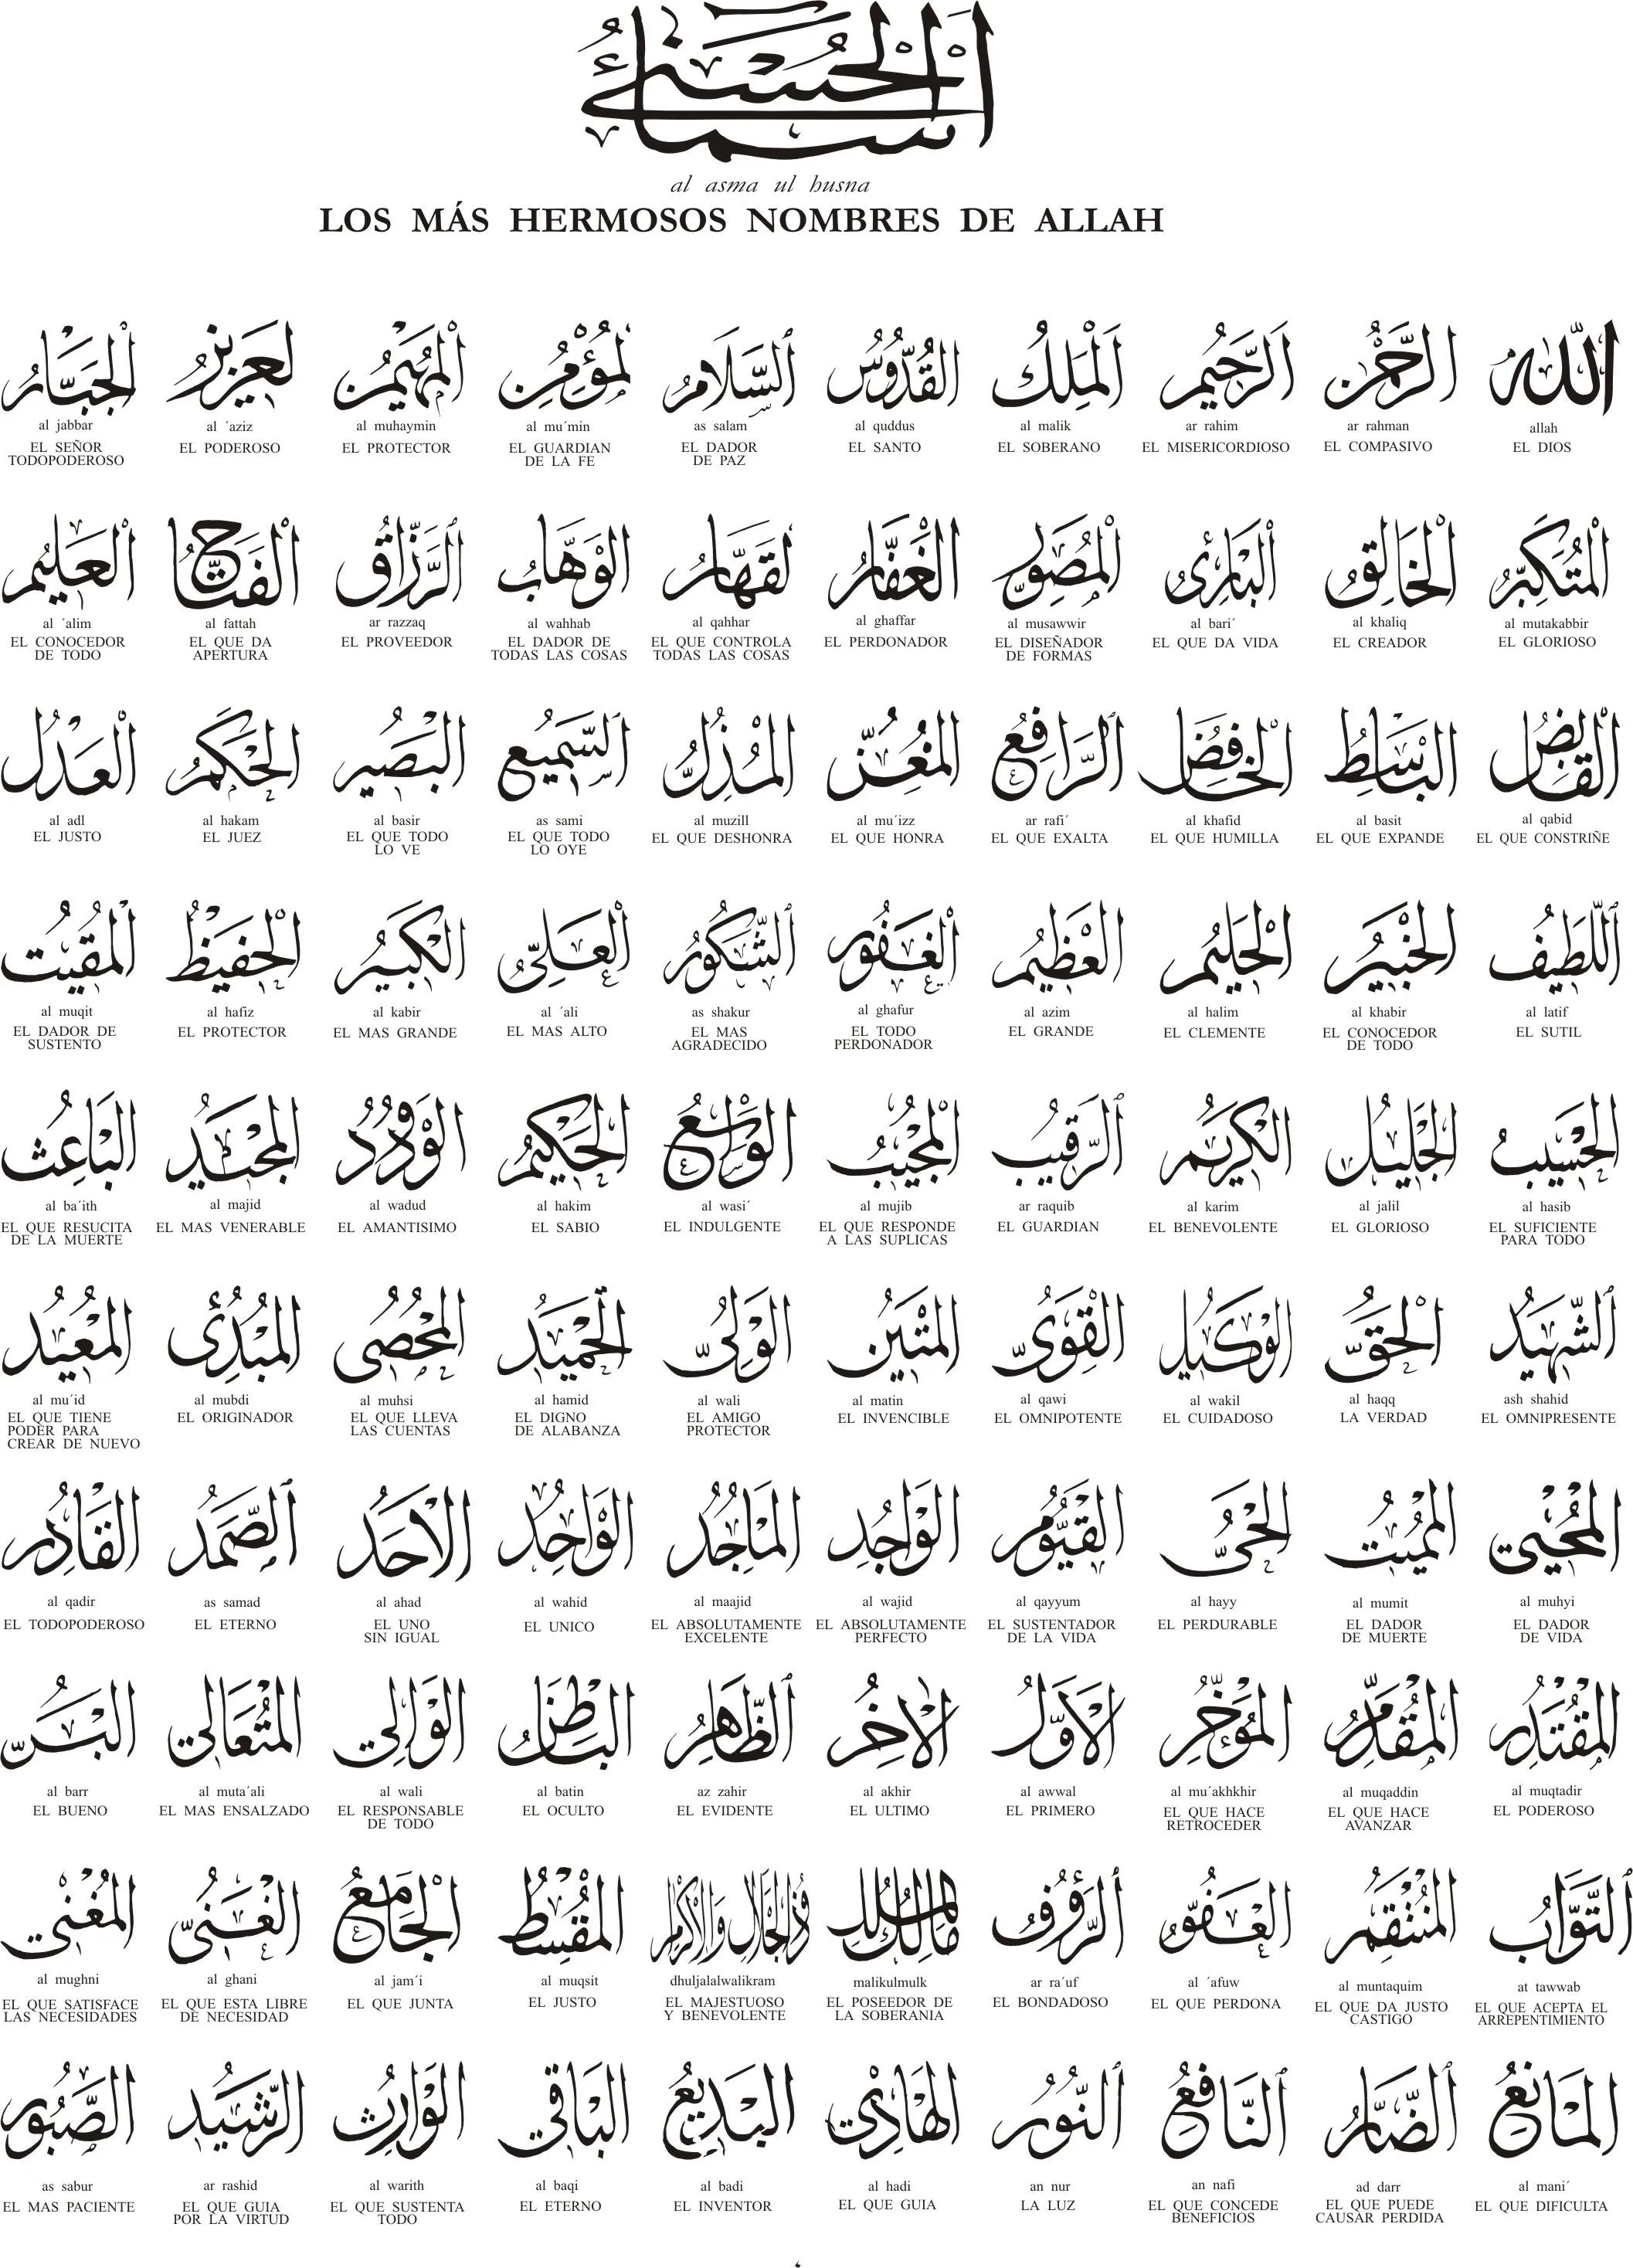 أسماء الحسنى
al asma ul husna
LOS MÁS HERMOSOS NOMBRES DE ALLAH
الله
allah
EL DIOS
الرحمن
ar rahman
EL COMPASIVO
الرحيم
ar rahim
EL MISERICORDIOSO
الملك
al malik
EL SOBERANO
القدوس
al quddus
EL SANTO
السلام
as salam
EL DADOR
DE PAZ
لمؤمن
al mu´min
EL GUARDIAN
DE LA FE
المهيمن
al muhaymin
EL PROTECTOR
لعزيز
al ´aziz
EL PODEROSO
الجبار
al jabbar
EL SEÑOR
TODOPODEROSO
المتكبر
al mutakabbir
EL GLORIOSO
الخالق
al khaliq
EL CREADOR
البارئ
al bari´
EL QUE DA VIDA
المصور
al musawwir
EL DISEÑADOR
DE FORMAS
الغفار
al ghaffar
EL PERDONADOR
لقهار
al qahhar
EL QUE CONTROLA
TODAS LAS COSAS
الوهاب
al wahhab
EL DADOR DE
TODAS LAS COSAS
الرزاق
ar razzaq
EL PROVEEDOR
الفتاح
al fattah
EL QUE DA
APERTURA
العليم
al ´alim
EL CONOCEDOR
DE TODO
القابض
al qabid
EL QUE CONSTRIÑE
الباسط
al basit
EL QUE EXPANDE
الخافض
al khafid
EL QUE HUMILLA
الرافع
ar rafi´
EL QUE EXALTA
المعز
al mu´izz
EL QUE HONRA
المذل
al muzill
EL QUE DESHONRA
السميع
as sami
EL QUE TODO
LO OYE
البصير
al basir
EL QUE TODO
LO VE
الحكم
al hakam
EL JUEZ
العدل
al adl
EL JUSTO
اللطيف
al latif
EL SUTIL
الخبير
al khabir
EL CONOCEDOR
DE TODO
الحليم
al halim
EL CLEMENTE
العظيم
al azim
EL GRANDE
الغفور
al ghafur
EL TODO
PERDONADOR
الشكور
as shakur
EL MAS
AGRADECIDO
العلي
al ´ali
EL MAS ALTO
الكبير
al kabir
EL MAS GRANDE
الحفيظ
al hafiz
EL PROTECTOR
المقيت
al muqit
EL DADOR DE
SUSTENTO
الحسيب
al hasib
EL SUFICIENTE
PARA TODO
الجليل
al jalil
EL GLORIOSO
الكريم
al karim
EL BENEVOLENTE
الرقيب
ar raquib
EL GUARDIAN
المجيب
al mujib
EL QUE RESPONDE
A LAS SUPLICAS
الواسع
al wasi´
EL INDULGENTE
الحكيم
al hakim
EL SABIO
الودود
al wadud
EL AMANTISIMO
المجيد
al majid
EL MAS VENERABLE
الباعث
al ba´ith
EL QUE RESUCITA
DE LA MUERTE
الشهيد
ash shahid
EL OMNIPRESENTE
الحق
al haqq
LA VERDAD
الوكيل
al wakil
EL CUIDADOSO
القوى
al qawi
EL OMNIPOTENTE
المتين
al matin
EL INVENCIBLE
الولى
al wali
EL AMIGO
PROTECTOR
الحميد
al hamid
EL DIGNO
DE ALABANZA
المحصى
al muhsi
EL QUE LLEVA
LAS CUENTAS
المبدئ
al mubdi
EL ORIGINADOR
المعيد
al mu´id
EL QUE TIENE
PODER PARA
CREAR DE NUEVO
المحيي
al muhyi
EL DADOR
DE VIDA
المميت
al mumit
EL DADOR
DE MUERTE
الحى
al hayy
EL PERDURABLE
القيوم
al qayyum
EL SUSTENTADOR
DE LA VIDA
الواجد
al wajid
EL ABSOLUTAMENTE
PERFECTO
الماجد
al maajid
EL ABSOLUTAMENTE
EXCELENTE
الواحد
al wahid
EL UNICO
الاحد
al ahad
EL UNO
SIN IGUAL
الصمد
as samad
EL ETERNO
القادر
al qadir
EL TODOPODEROSO
المقتدر
al muqtadir
EL PODEROSO
المقدم
al muqaddin
EL QUE HACE
AVANZAR
المؤخر
al mu´akhkhir
EL QUE HACE
RETROCEDER
الاول
al awwal
EL PRIMERO
الاخر
al akhir
EL ULTIMO
الظاهر
az zahir
EL EVIDENTE
الباطن
al batin
EL OCULTO
الوالي
al wali
EL RESPONSABLE
DE TODO
المتعالي
al muta´ali
EL MAS ENSALZADO
البر
al barr
EL BUENO
التواب
at tawwab
EL QUE ACEPTA EL
ARREPENTIMIENTO
المنتقم
al muntaquim
EL QUE DA JUSTO
CASTIGO
العفو
al ´afuw
EL QUE PERDONA
الرؤف
ar ra´uf
EL BONDADOSO
مالك الملك
malikulmulk
EL POSEEDOR DE
LA SOBERANIA
ذو الجلال والاكرام
dhuljalalwalikram
EL MAJESTUOSO
Y BENEVOLENTE
المقسط
al muqsit
EL JUSTO
الجامع
al jam´i
EL QUE JUNTA
الغنى
al ghani
EL QUE ESTA LIBRE
DE NECESIDAD
المغني
al mughni
EL QUE SATISFACE
LAS NECESIDADES
المانع
al mani´
EL QUE DIFICULTA
الضار
ad darr
EL QUE PUEDE
CAUSAR PERDIDA
النافع
an nafi
EL QUE CONCEDE
BENEFICIOS
النور
an nur
LA LUZ
الهادي
al hadi
EL QUE GUIA
البديع
al badi
EL INVENTOR
الباقي
al baqi
EL ETERNO
الوارث
al warith
EL QUE SUSTENTA
TODO
الرشيد
ar rashid
EL QUE GUIA
POR LA VIRTUD
الصبور
as sabur
EL MAS PACIENTE